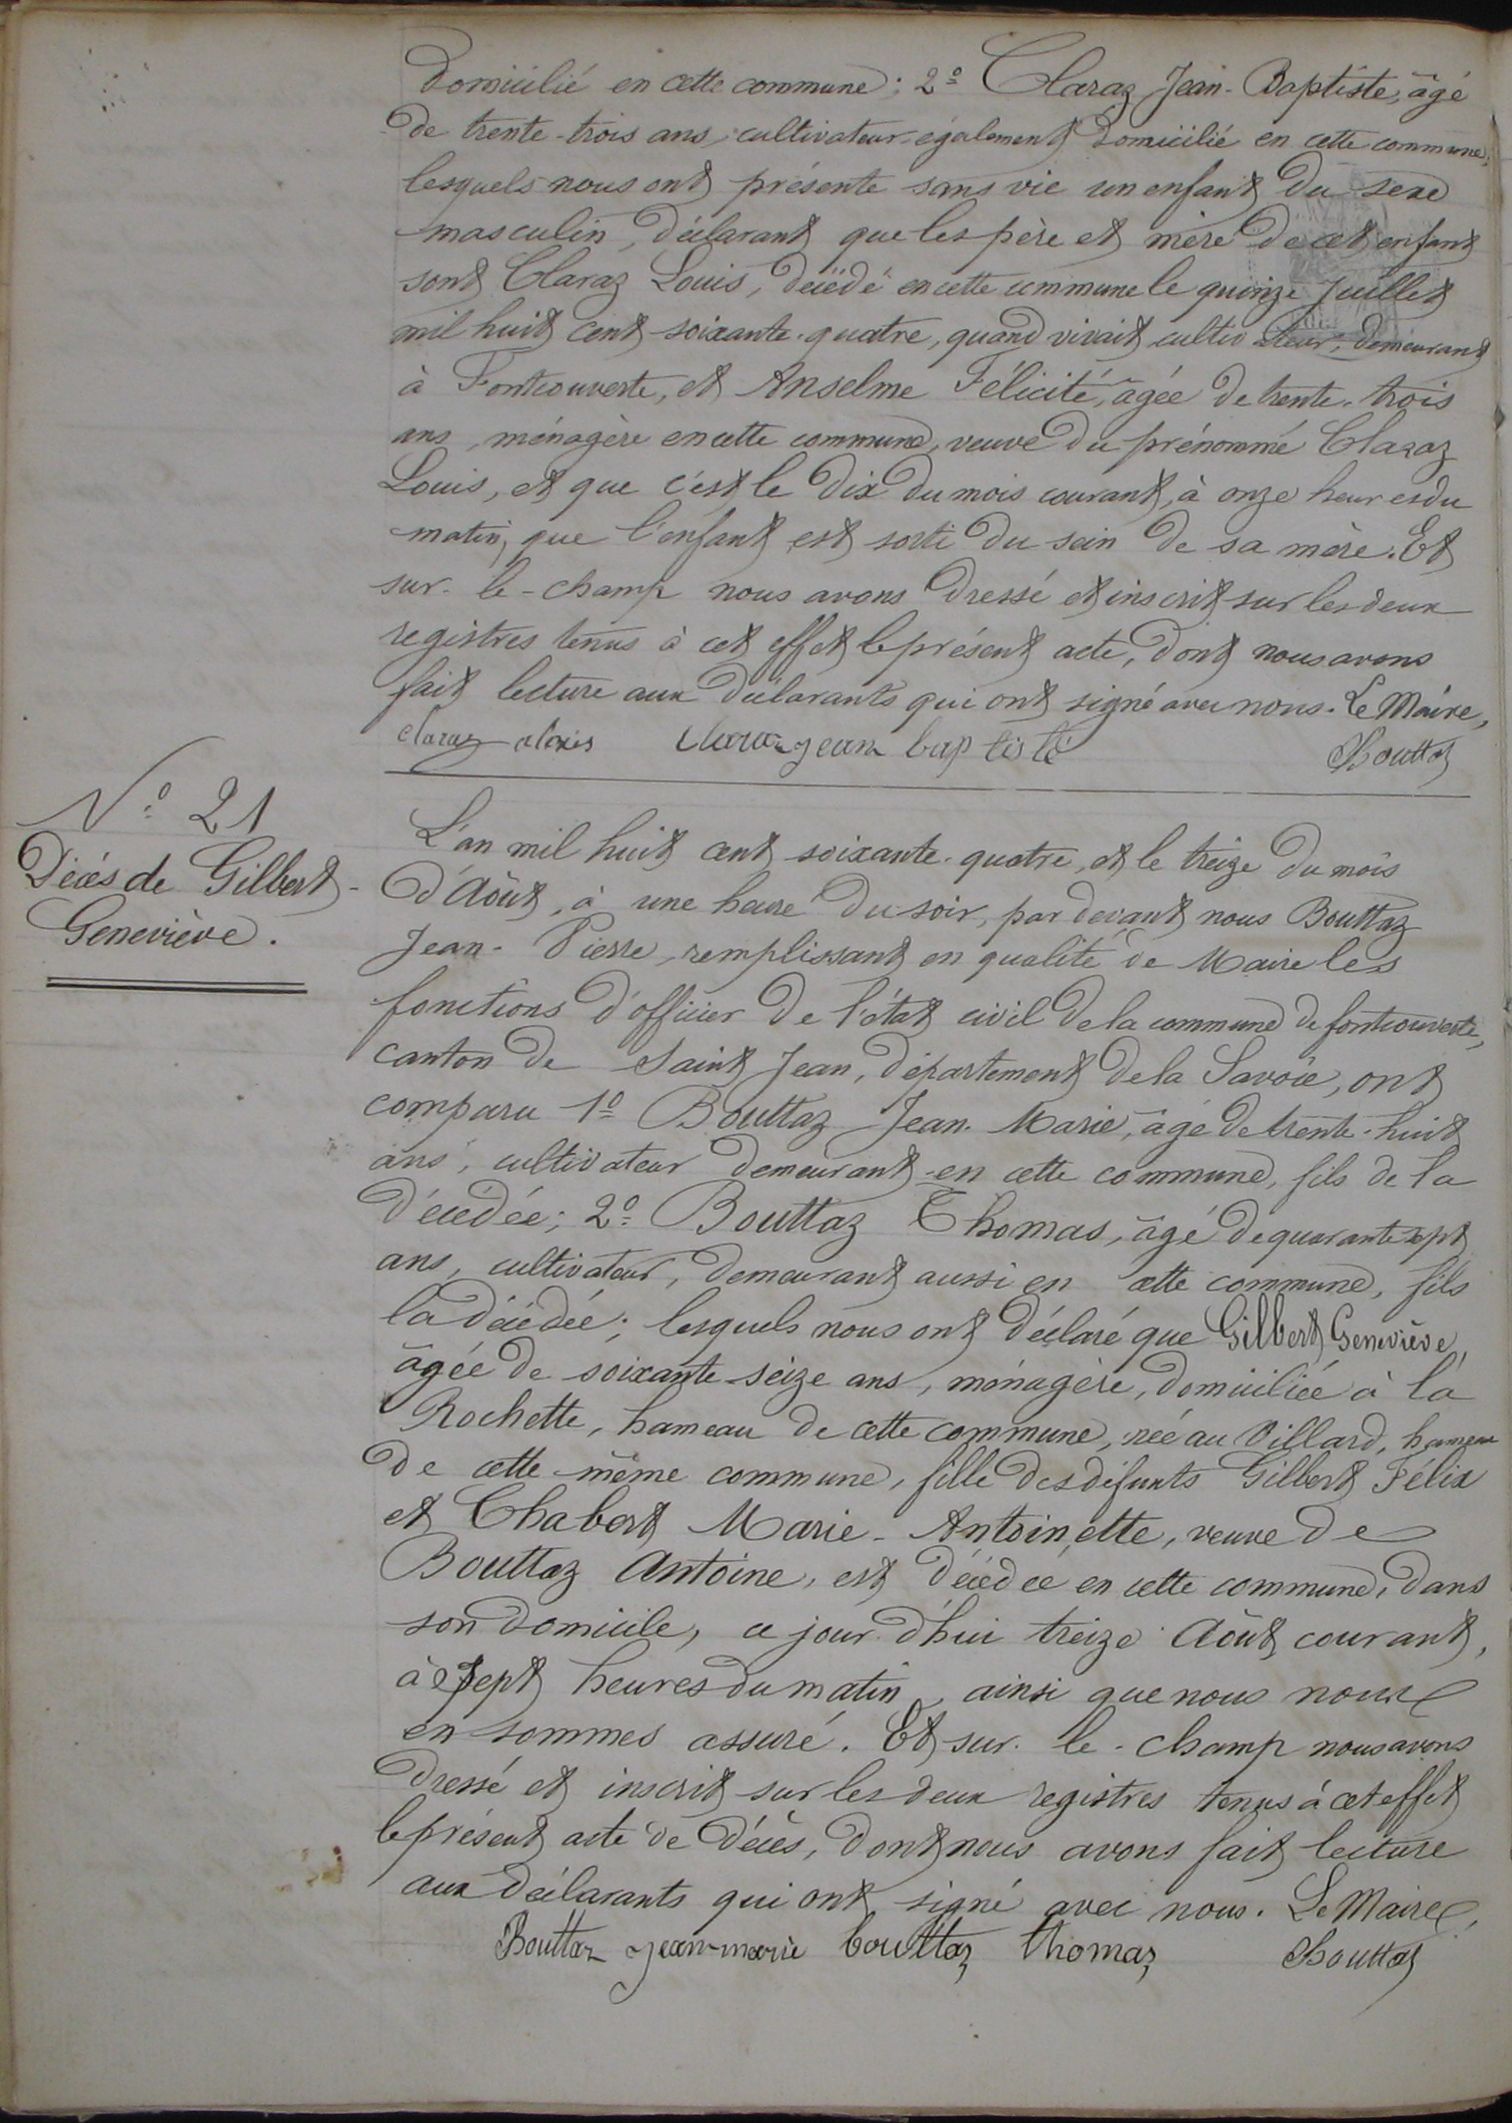 domicilié en cette commune; 2º Claraz Jean-Baptiste, âgé
de trente-trois ans, cultivateur également domicilié en cette commune;
lesquels nous ont présenté sans vie un enfant du sexe
masculin, déclarant que les père et mère de cet enfant
sont Claraz Louis, décédé en cette commune le quinze Juillet
mil huit cent soixante-quatre, quand vivait cultivateur, demeurant
à Fontcouverte, et Anselme Félicité, âgée de trente-trois
ans, ménagère en cette commune, veuve du prénommé Claraz
Louis, et que c'est le dix du mois courant, à onze heures du
matin, que l'enfant est sorti du sein de sa mère. Et
sur-le-champ nous avons dressé et inscrit sur les deux
registres tenus à cet effet le présent acte, dont nous avons
fait lecture aux déclarants qui ont signé avec nous. Le Maire,
claraz alexis Claraz jean baptiste Bouttaz
Nº 21
Décès de Gilbert
Geneviève.
L'an mil huit cent soixante-quatre, et le treize du mois
d'Août, à une heure du soir, par devant nous Bouttaz
Jean-Pierre, remplissant en qualité de Maire les
fonctions d'officier de l'état civil de la commune de fontcouverte,
canton de Saint Jean, département de la Savoie, ont
comparu 1º Bouttaz Jean-Marie, âgé de trente-huit
ans, cultivateur demeurant en cette commune, fils de la
décédée; 2º Bouttaz Thomas, âgé de quarante sept
ans, cultivateur, demeurant aussi en cette commune, fils
la décédée; lesquels nous ont déclaré que Gilbert Geneviève,
âgée de soixante-seize ans, ménagère, domiciliée à la
Rochette, hameau de cette commune, née au Villard, hameau
de cette même commune, fille des défunts Gilbert Félix
et Chabert Marie-Antoinette, veuve de
Bouttaz Antoine, est décédée en cette commune, dans
son domicile, ce jour d'hui treize Août courant,
à sept heures du matin, ainsi que nous nous
en sommes assuré. Et sur-le-champ nous avons
dressé et inscrit sur les deux registres tenus à cet effet
le présent acte de décès, dont nous avons fait lecture
aux déclarants qui ont signé avec nous. Le Maire,
Bouttaz jean-marie bouttaz thomas Bouttaz